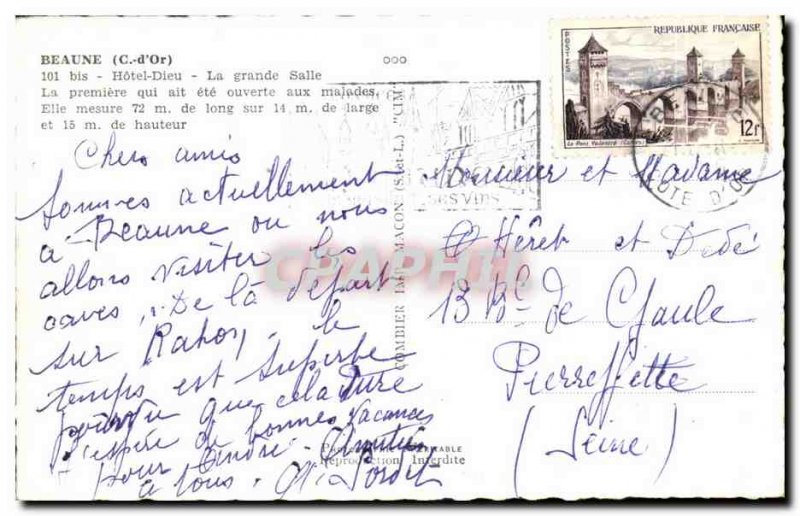 BEAUNE (C.-d'Or)
101 bis - Hôtel-Dieu - La grande Salle
La première qui ait été ouverte aux malades.
Elle mesure 72 m. de long sur 14 m. de large
et 15 m. de hauteur
Chers amis
Sommes actuellement
à Beaune ou nous
allons visiter les
caves. De là départ
sur
le
temps est superbe
pourvu que cela dure
J'espère de bonnes vacances
pour André. Amitiés
à tous.
COMBIER IMP. MACON (S.-et-L.) "CIM"
Photographie VÉRITABLE
Reproduction Interdite
POSTES
REPUBLIQUE FRANÇAISE
Le Pont Valentré (Cahors)
12F
BEAUNE
COTE D'OR
SES VINS
Monsieur et Madame
et Dédé
13 de Gaule
Pierrefitte
(Seine)
CPAPHIL